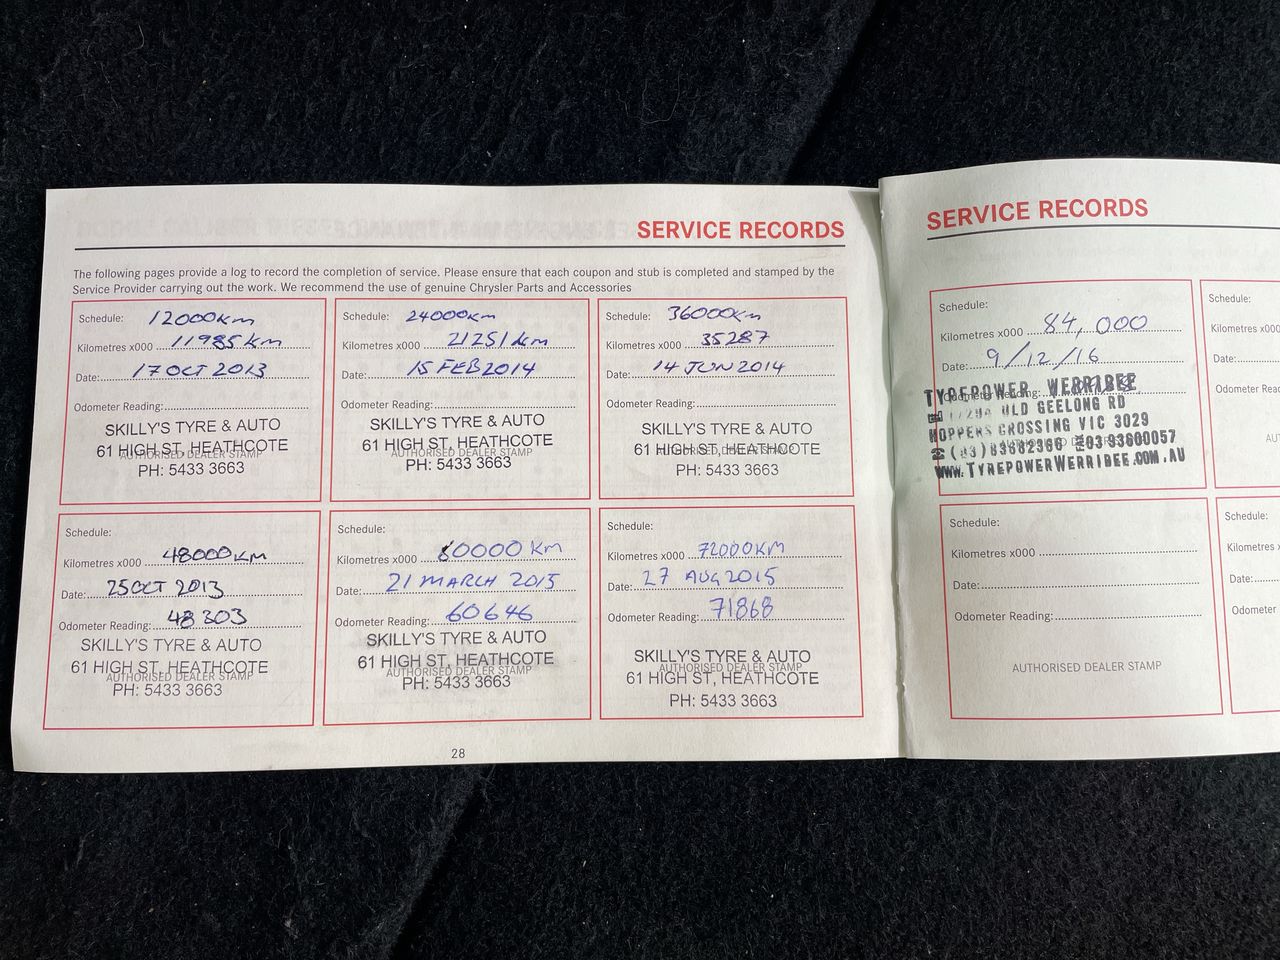 SERVICE RECORDS
The following pages provide a log to record the completion of service. Please ensure that each coupon and stub is completed and stamped by the
Service Provider carrying out the work. We recommend the use of genuine Chrysler Parts and Accessories
Schedule: 12000km
Kilometres x000 11985 km
Date: 17 OCT 2013
Odometer Reading:
SKILLY'S TYRE & AUTO
61 HIGH ST, HEATHCOTE
AUTHORISED DEALER STAMP
PH: 5433 3663
Schedule: 24000km
Kilometres x000 21251 km
Date: 15 FEB 2014
Odometer Reading:
SKILLY'S TYRE & AUTO
61 HIGH ST, HEATHCOTE
AUTHORISED DEALER STAMP
PH: 5433 3663
Schedule: 36000km
Kilometres x000 35287
Date: 14 JUN 2014
Odometer Reading:
SKILLY'S TYRE & AUTO
61 HIGH ST, HEATHCOTE
AUTHORISED DEALER STAMP
PH: 5433 3663
Schedule:
Kilometres x000 48000km
Date: 25 OCT 2013
Odometer Reading: 48303
SKILLY'S TYRE & AUTO
61 HIGH ST, HEATHCOTE
AUTHORISED DEALER STAMP
PH: 5433 3663
Schedule:
Kilometres x000 60000 KM
Date: 21 MARCH 2015
Odometer Reading: 60646
SKILLY'S TYRE & AUTO
61 HIGH ST, HEATHCOTE
AUTHORISED DEALER STAMP
PH: 5433 3663
Schedule:
Kilometres x000 72000KM
Date: 27 AUG 2015
Odometer Reading: 71868
SKILLY'S TYRE & AUTO
AUTHORISED DEALER STAMP
61 HIGH ST, HEATHCOTE
PH: 5433 3663
28
SERVICE RECORDS
Schedule:
Kilometres x000 84,000
Date: 9/12/16
Odometer Reading:
TYREPOWER WERRIBEE
OLD GEELONG RD
HOPPERS CROSSING VIC 3029
03 93600057
www.TYREPOWERWERRIBEE.COM.AU
Schedule:
Kilometres x000
Date:
Odometer Reading:
AUTHORISED DEALER STAMP
Schedule:
Kilometres
Date:
Schedule:
Kilometres x
Date:
Odometer